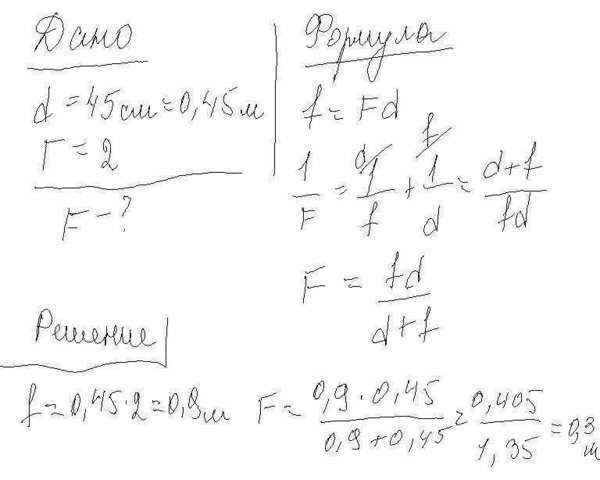 Дано
d = 45см = 0,45м
Г = 2
F - ?
Формула
f = Fd
1/F = 1/f + 1/d = d+f/fd
F = fd/d+f
Решение
f = 0,45·2 = 0,9м
F = 0,9·0,45/0,9+0,45 = 0,405/1,35 = 0,3 м